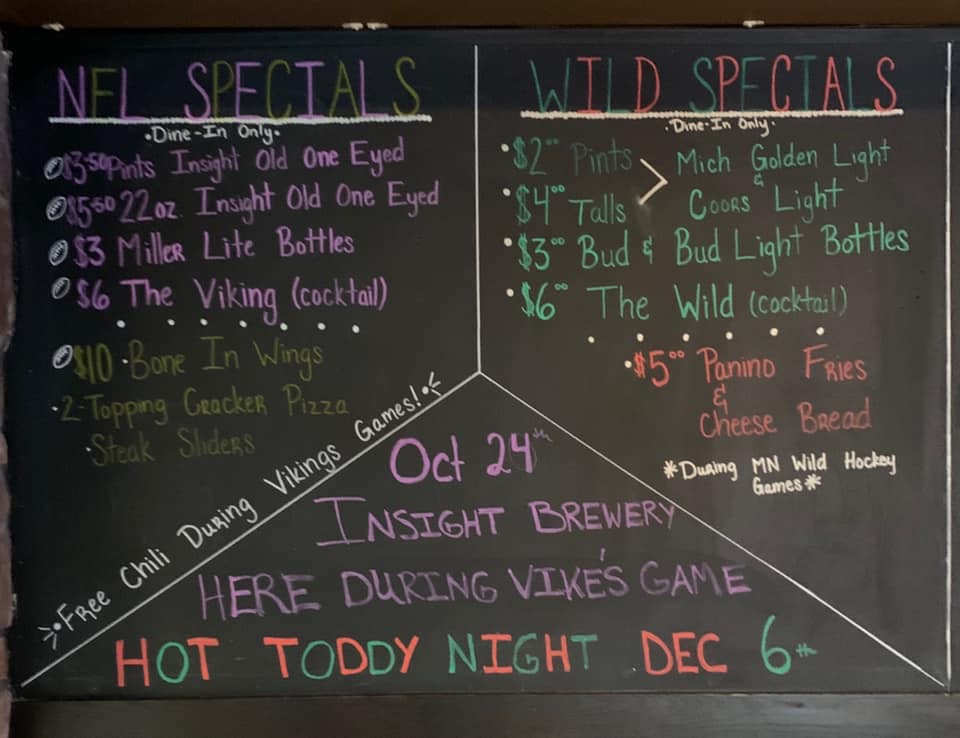 NFL SPECIALS
•Dine-In Only•
$3.50 Pints Insight Old One Eyed
$5.50 22oz. Insight Old One Eyed
$3 Miller Lite Bottles
$6 The Viking (cocktail)
$10 •Bone In Wings
•2-Topping Cracker Pizza
•Steak Sliders
•Free Chili During Vikings Games!•
WILD SPECIALS
•Dine-In Only•
•$2.00 Pints > Mich Golden Light
&
•$4.00 Talls Coors Light
•$3.00 Bud & Bud Light Bottles
•$6.00 The Wild (cocktail)
•$5.00 Panino Fries
&
Cheese Bread
*During MN Wild Hockey
Games*
Oct 24th
INSIGHT BREWERY
HERE DURING VIKE'S GAME
HOT TODDY NIGHT DEC 6th